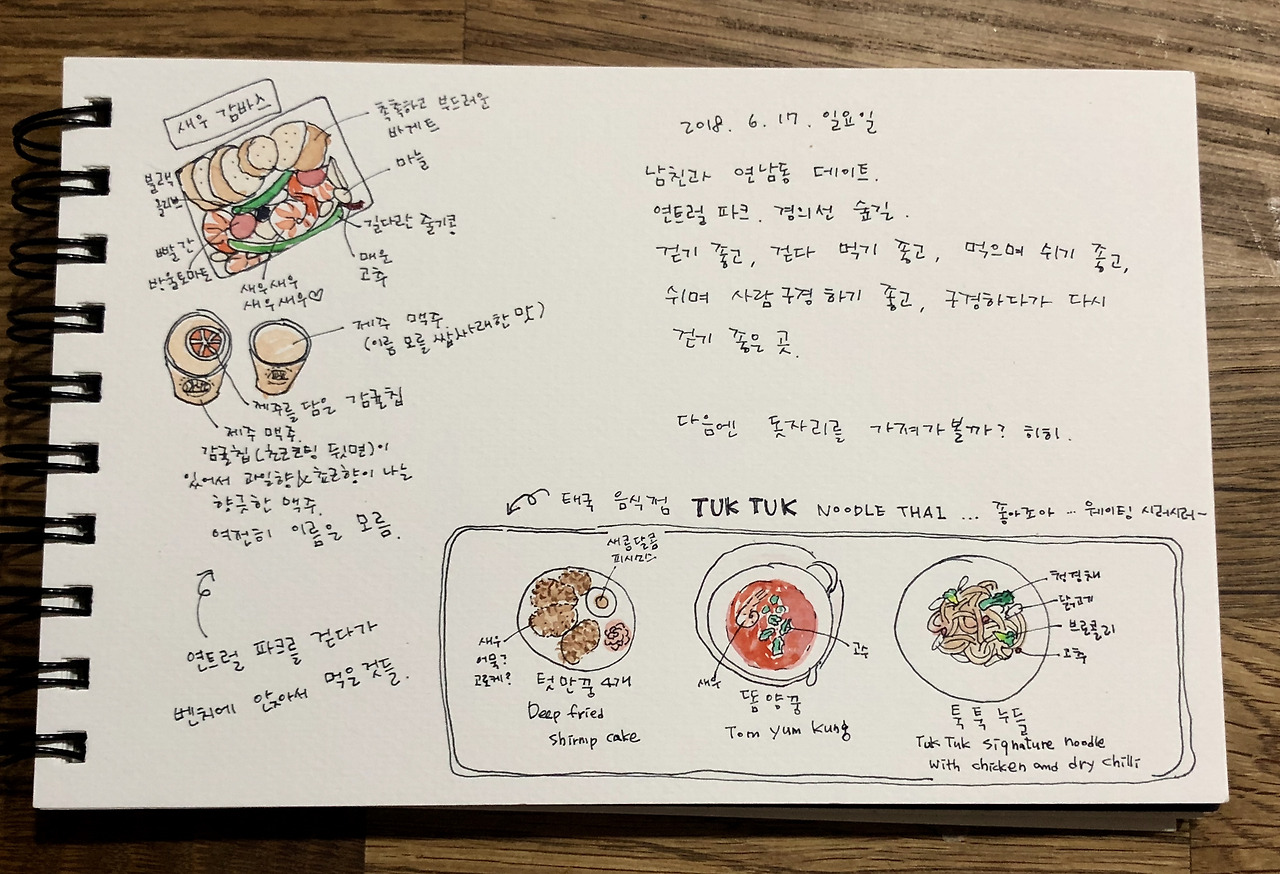 새우 감바스
촉촉하고 부드러운
바게트
마늘
블랙
올리브
길다란 줄기콩
빨간
방울토마토
매운
고추
새우새우
새우새우♡
제주 맥주
(이름 모를 쌉싸래한 맛)
제주를 담은 감귤칩
제주 맥주.
감귤칩(초코코팅 뒷면)이
있어서 과일향&초코향이 나는
향긋한 맥주.
여전히 이름은 모름.
연트럴 파크를 걷다가
벤치에 앉아서 먹은 것들.
2018. 6. 17. 일요일
남친과 연남동 데이트.
연트럴 파크. 경의선 숲길.
걷기 좋고, 걷다 먹기 좋고, 먹으며 쉬기 좋고,
쉬며 사람구경 하기 좋고, 구경하다가 다시
걷기 좋은 곳.
다음엔 돗자리를 가져가볼까? 히히.
태국 음식점 TUK TUK NOODLE THAI ... 좋아조아 ... 웨이팅 시러시러~
새콤달콤
피시소스
새우
어묵?
고로케?
텃만꿍 4개
Deep fried
shirmp cake
새우
고수
똠양꿍
Tom yum kung
청경채
닭고기
브로콜리
고추
툭툭누들
Tuk Tuk signature noodle
with chicken and dry chilli